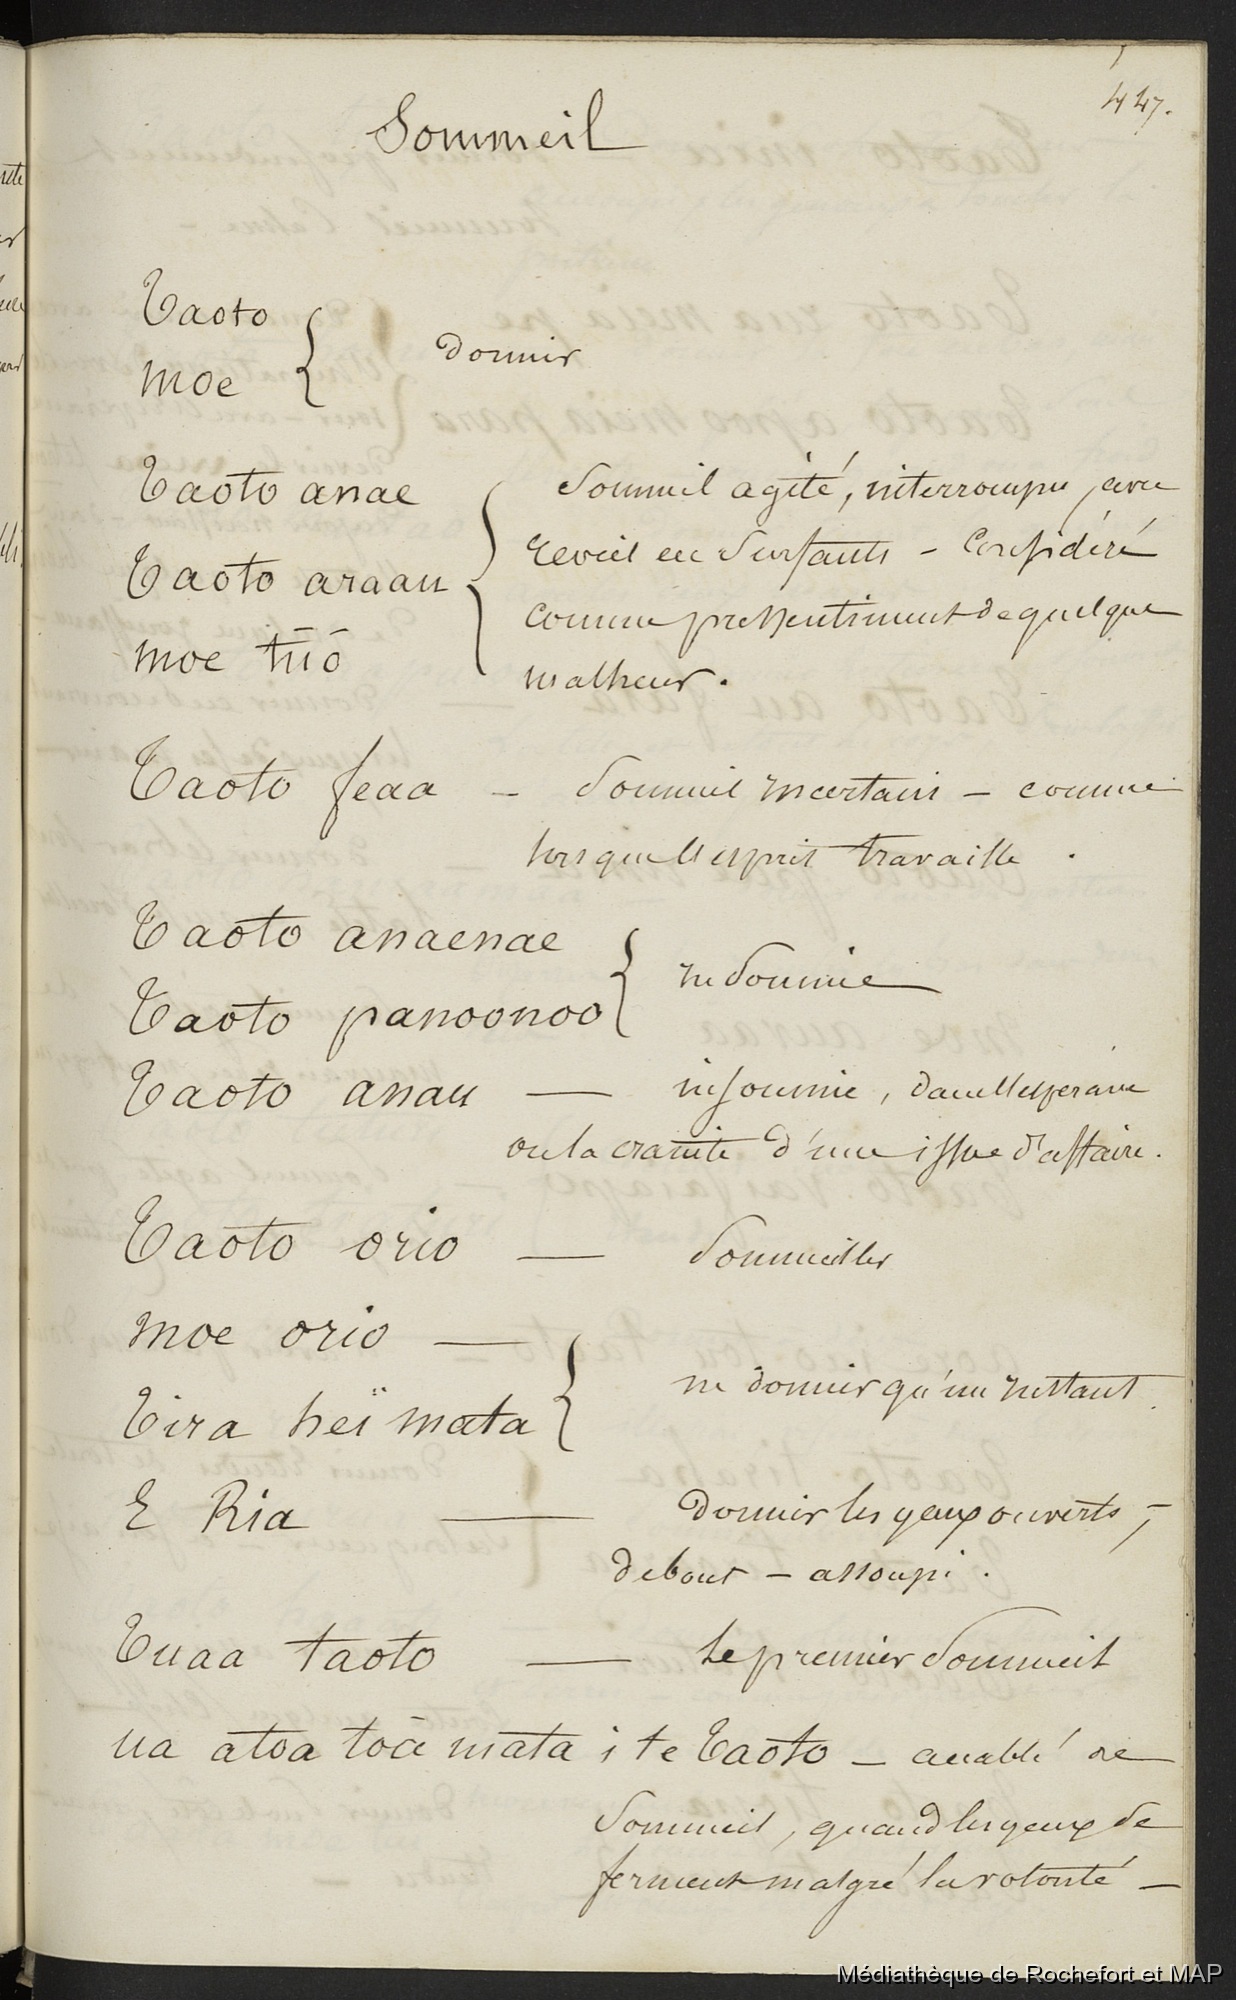 447.
Sommeil
Taoto
moe
dormir
Taoto anae
Taoto araau
moe tūō
Sommeil agité, interrompu, avec
reveil en Sursauts - Considéré
comme pressentiment de quelque
malheur.
Taoto feaa - Sommeil incertain - comme
lorsque l'esprit travaille.
Taoto anaenae
Taoto panoonoo
insomnie
Taoto anau — insomnie, dans l'esperance
ou la crainte d'une issue d'affaire.
Taoto orio — Sommeiller
moe orio —
Tira heï mata
ne dormir qu'un instant
E Ria — dormir les yeux ouverts, -
debout - assoupi.
Tuaa taoto — le premier Sommeil
ua atoa toā mata i te Taoto - accablé de
Sommeil, quand les yeux se
ferment malgré la volonté -
Médiathèque de Rochefort et MAP